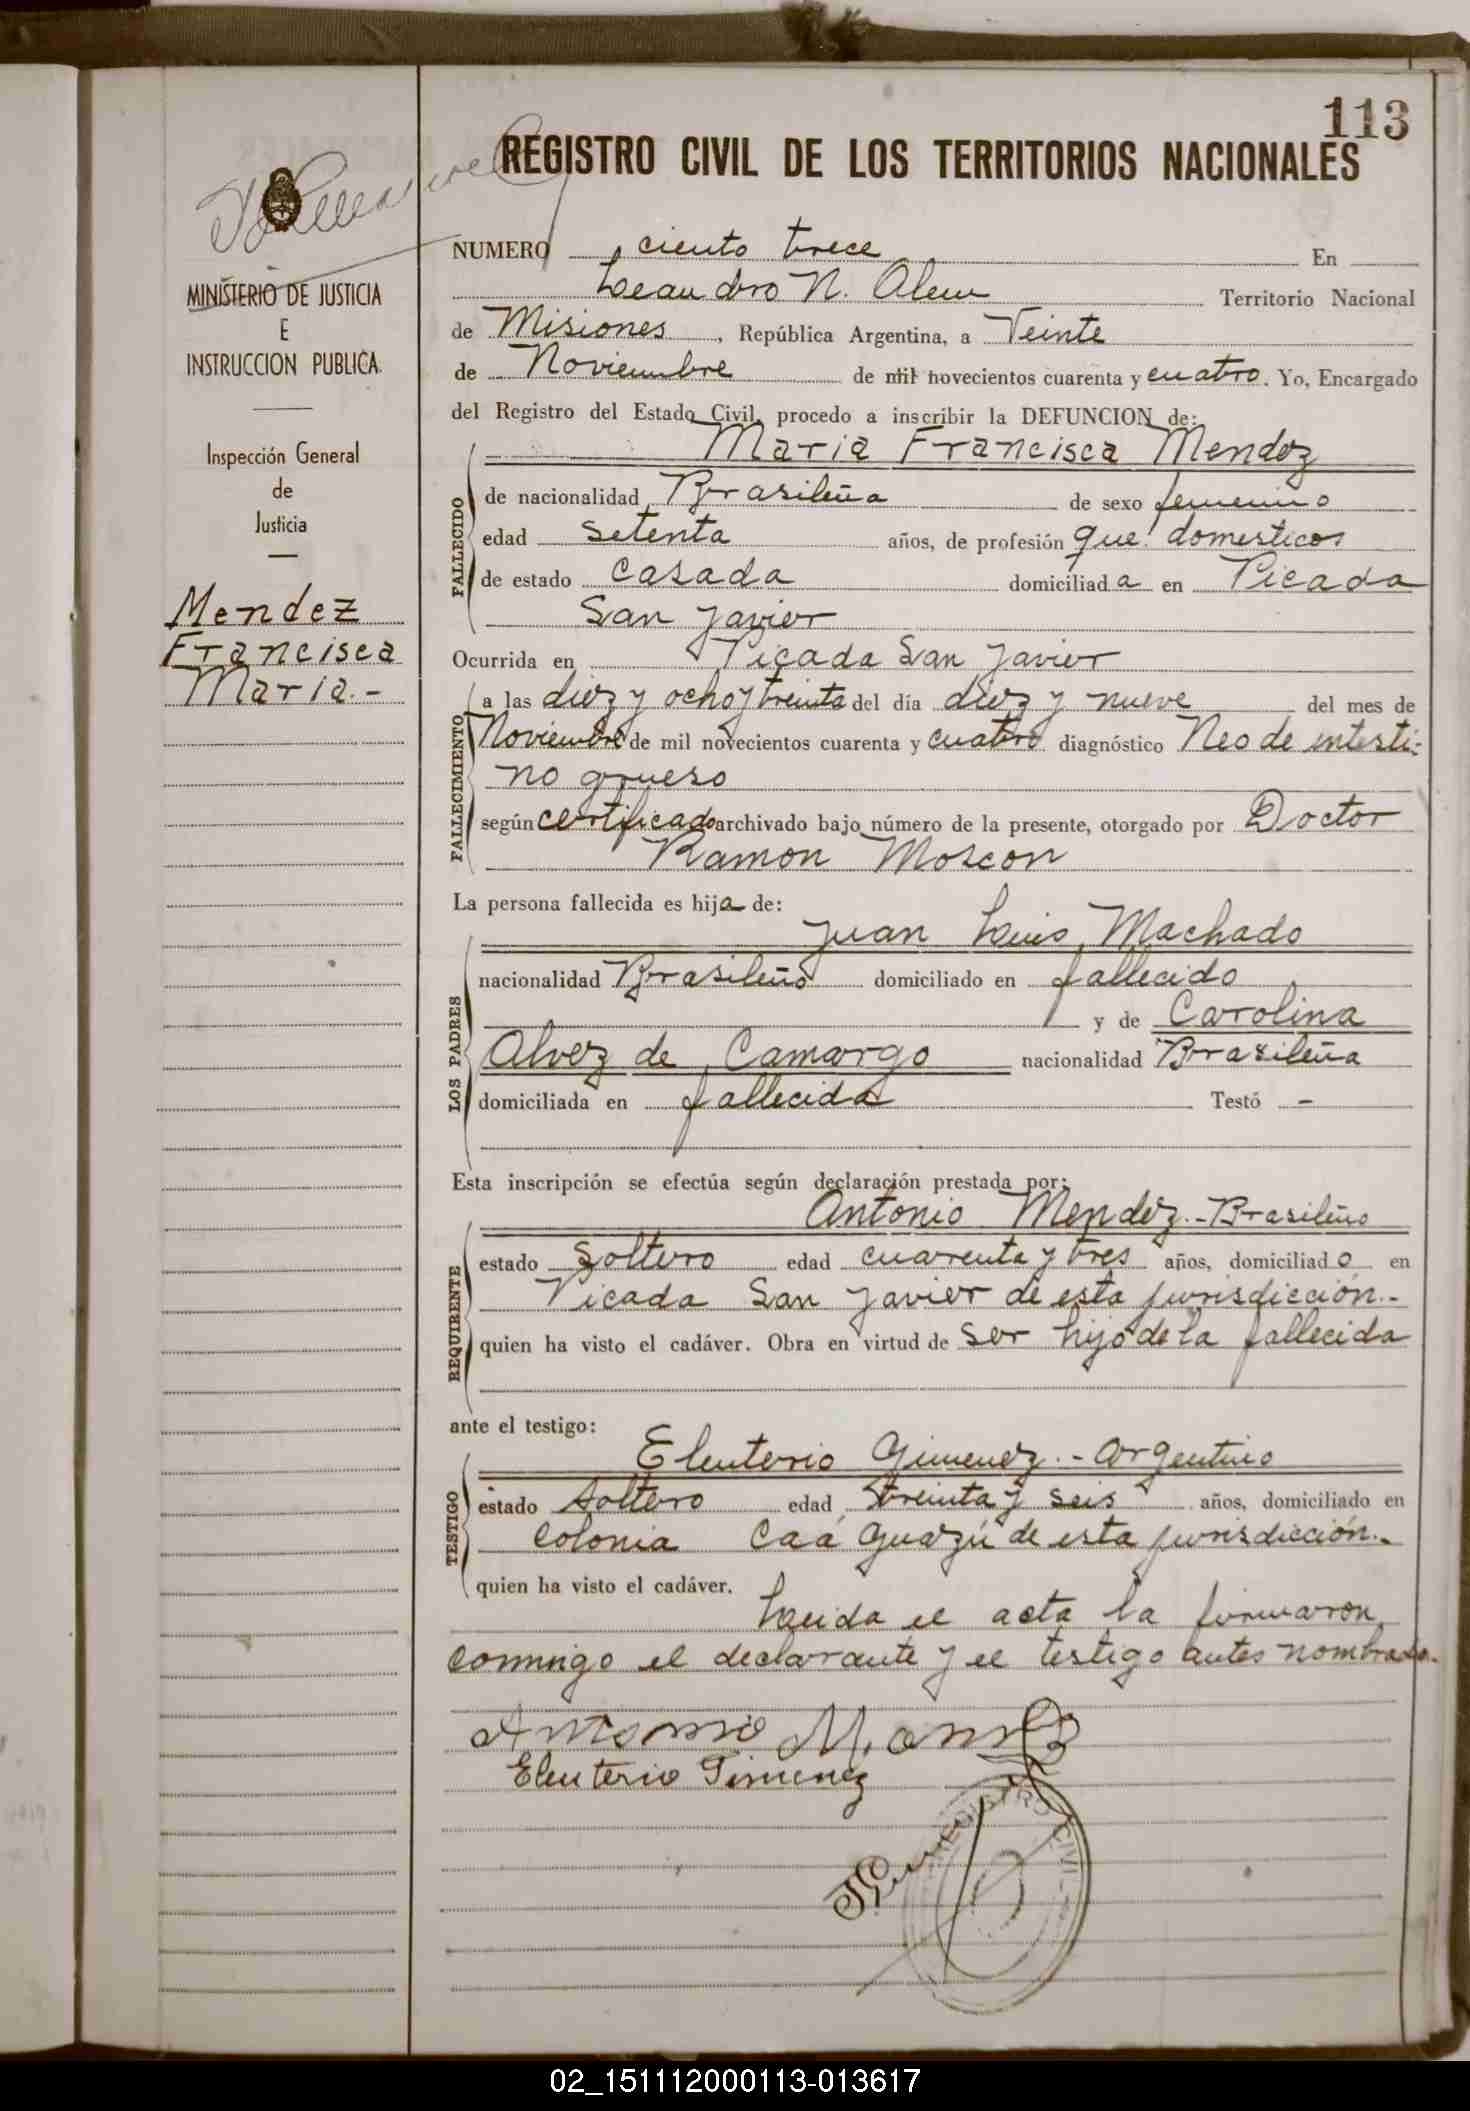 113
REGISTRO CIVIL DE LOS TERRITORIOS NACIONALES
MINISTERIO DE JUSTICIA
E
INSTRUCCION PUBLICA
Inspección General
de
Justicia
Mendez
Francisca
Maria.-
NUMERO ciento trece En
Leandro N. Alem Territorio Nacional
de Misiones, República Argentina, a Veinte
de Noviembre de mil novecientos cuarenta y cuatro. Yo, Encargado
del Registro del Estado Civil, procedo a inscribir la DEFUNCION de:
Maria Francisca Mendez
FALLECIDO
de nacionalidad Brasileña de sexo femenino
edad setenta años, de profesión que. domesticos
de estado casada domiciliada en Picada
San Javier
Ocurrida en Picada San Javier
FALLECIMIENTO
a las diez y ocho y treinta del día diez y nueve del mes de
Noviembre de mil novecientos cuarenta y cuatro diagnóstico Neo de intesti-
no grueso
según certificado archivado bajo número de la presente, otorgado por Doctor
Ramon Moscon
La persona fallecida es hija de:
LOS PADRES
Juan Luis Machado
nacionalidad Brasileño domiciliado en fallecido
y de Carolina
Alvez de Camargo nacionalidad Brasileña
domiciliada en fallecida Testó -
Esta inscripción se efectúa según declaración prestada por:
REQUIRENTE
Antonio Mendez.- Brasileño
estado soltero edad cuarenta y tres años, domiciliado en
Picada San Javier de esta jurisdicción.-
quien ha visto el cadáver. Obra en virtud de ser hijo de la fallecida
ante el testigo:
TESTIGO
Eleuterio Gimenez.- argentino
estado soltero edad treinta y seis años, domiciliado en
colonia Caá Guazú de esta jurisdicción.-
quien ha visto el cadáver.
Leida el acta la firmaron
conmigo el declarante y el testigo antes nombrado.
Antonio
Eleuterio Gimenez
REGISTRO CIVIL
02_151112000113-013617